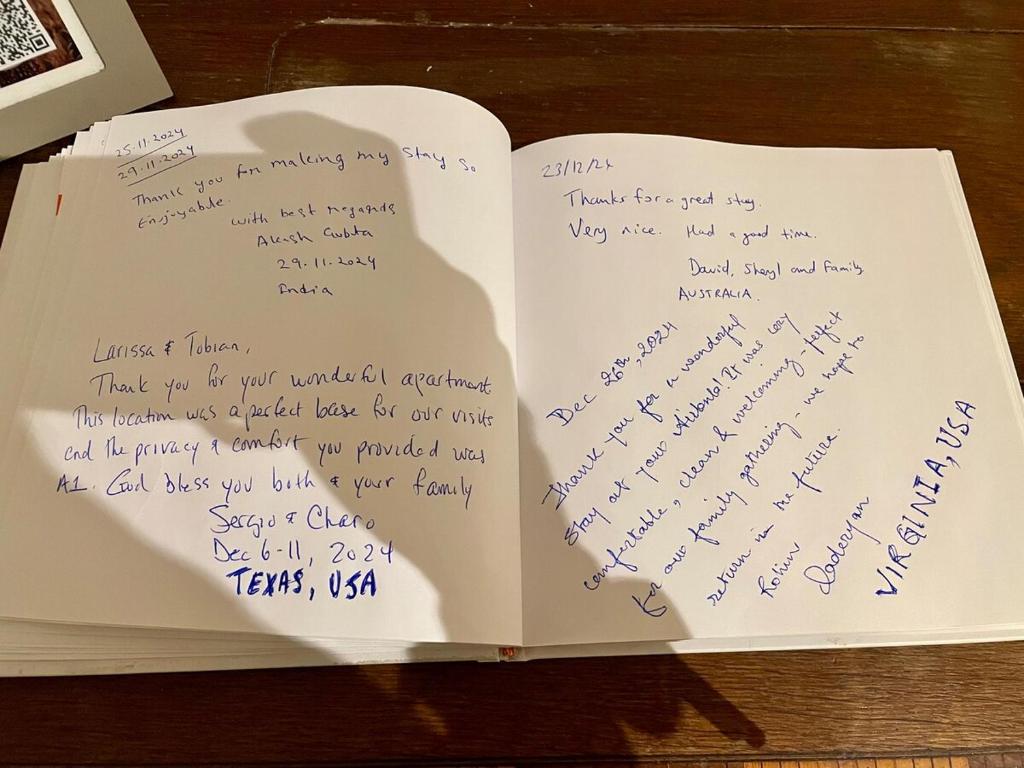 25.11.2024
29.11.2024
Thank you for making my stay so
Enjoyable.
with best regards
Akash Gupta
29.11.2024
India
Larissa & Tobian,
Thank you for your wonderful apartment
This location was a perfect base for our visits
and the privacy & comfort you provided was
A1. God bless you both & your family
Sergio & Charo
Dec 6-11, 2024
TEXAS, USA
23/12/24
Thanks for a great stay.
Very nice. Had a good time.
David, Sheryl and Family
AUSTRALIA.
Dec 26th, 2024
Thank you for a wonderful
stay at your Airbnb! It was very
comfortable, clean & welcoming - perfect
for our family gathering - we hope to
return in the future.
VIRGINIA, USA